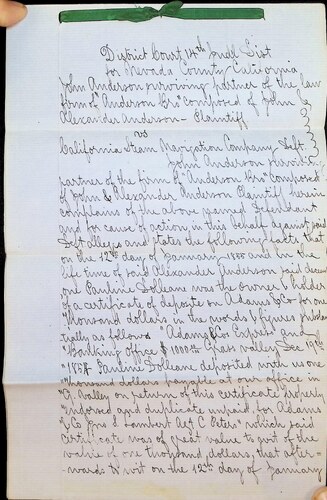 District Court 14th Judl Dist
for Nevada County California
John Anderson surviving partner of the law
firm of Anderson Bro composed of John &
Alexander Anderson - Plaintiff
vs
California Steam Navigation Company Deft
John Anderson surviving
partner of the firm of Anderson Bro Composed
of John & Alexander Anderson Plaintiff herein
complains of the above named Defendant
and for cause of action in this behalf against said
Deft alleges and states the following facts that
on the 12th day of January 1855 and in the
life time of said Alexander Anderson said decd
one Pauline Dolleans was the owner & holder
of a certificate of deposite on Adams & Co for one
thousand dollars in the words & figures substan
tially as follows "Adams & Co Express and
Banking Office $1000 Grass Valley Dec 19th
1854 Pauline Dolleans deposited with us one
thousand dollars payable at our office in
G. Valley on return of this certificate properly
indorsed and duplicate unpaid, for Adams
& Co Jno S Lambert Agt C Peters" which said
certificate was of great value to wit of the
value of one thousand dollars, that after-
wards to wit on the 12th day of January